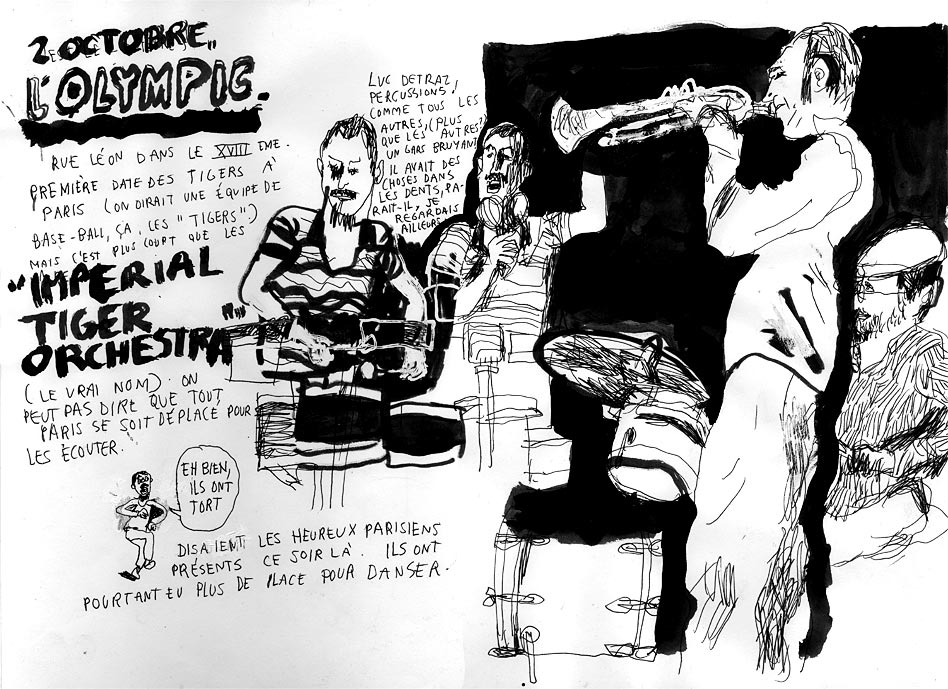 2 OCTOBRE,
L'OLYMPIC.
RUE LÉON DANS LE XVIIIEME.
PREMIÈRE DATE DES TIGERS À
PARIS (ON DIRAIT UNE ÉQUIPE DE
BASE-BALL, ÇA. LES "TIGERS")
MAIS C'EST PLUS COURT QUE LES
"IMPERIAL
TIGER
ORCHESTRA"
(LE VRAI NOM). ON
PEUT PAS DIRE QUE TOUT
PARIS SE SOIT DÉPLACÉ POUR
LES ÉCOUTER.
EH BIEN,
ILS ONT
TORT
DISAIENT LES HEUREUX PARISIENS
PRÉSENTS CE SOIR LÀ. ILS ONT
POURTANT EU PLUS DE PLACE POUR DANSER.
LUC DETRAZ,
PERCUSSIONS!
COMME TOUS LES
AUTRES, (PLUS
QUE LES AUTRES?)
UN GARS BRUYANT
IL AVAIT DES
CHOSES DANS
LES DENTS, PA-
RAIT-IL, JE
REGARDAIS
AILLEURS